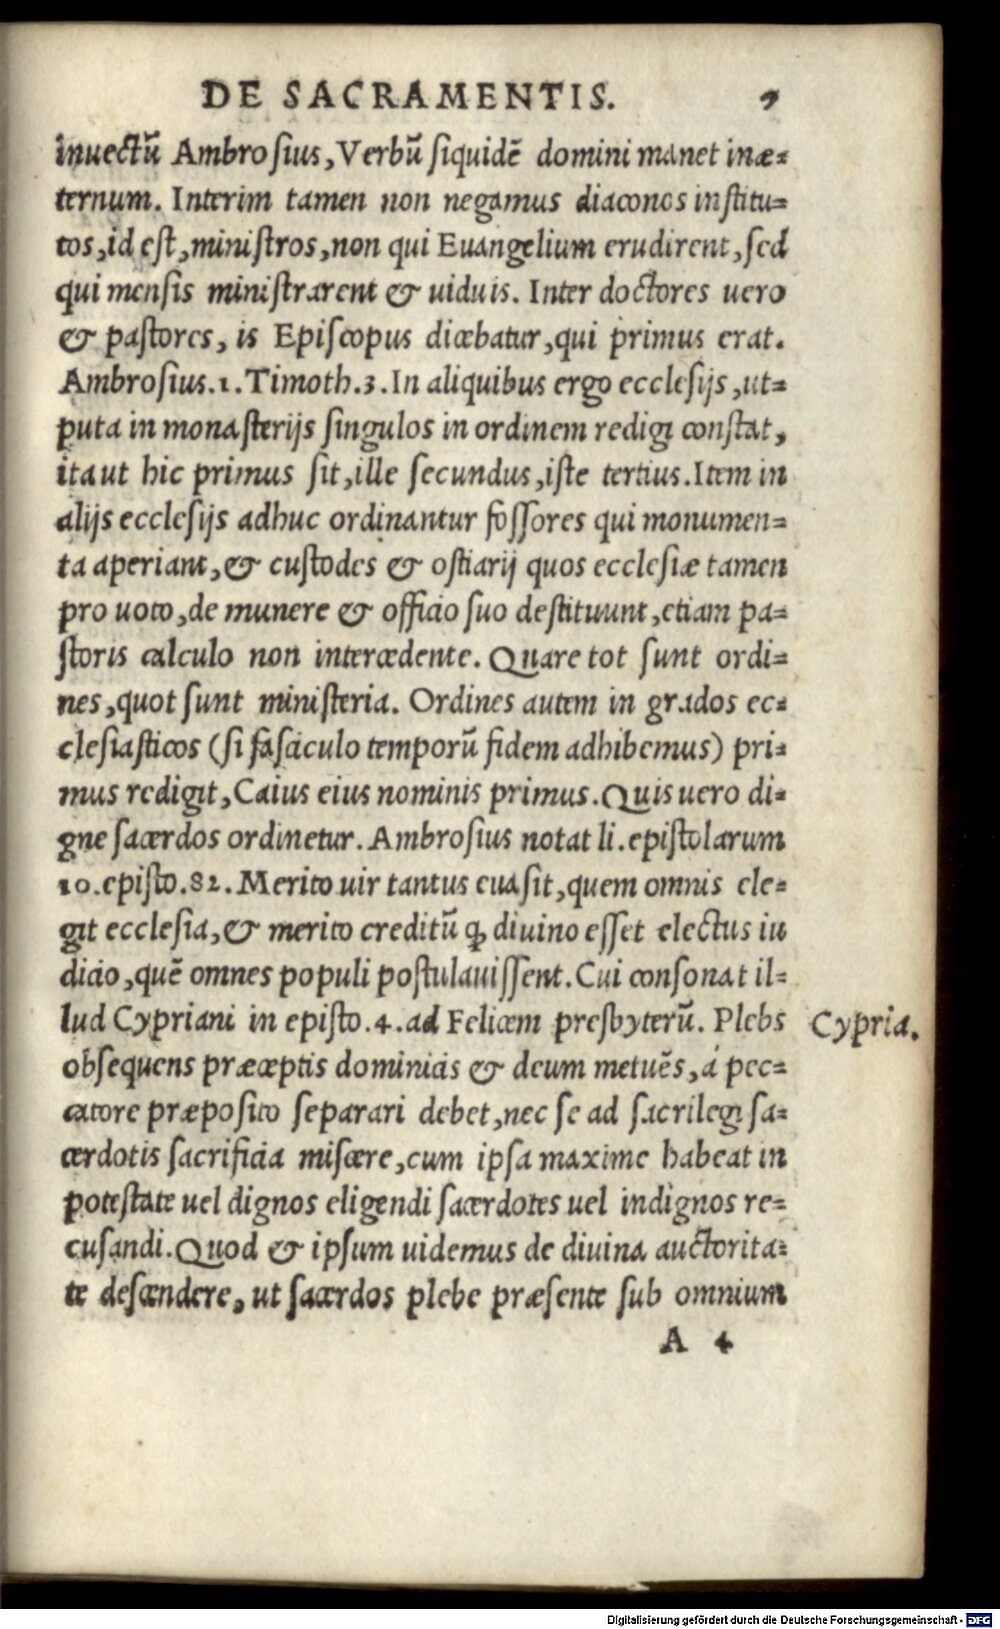 DE SACRAMENTIS. 7
inuectũ Ambrosius, Verbũ siquidẽ domini manet inæ-
ternum. Interim tamen non negamus diaconos institu-
tos, id est, ministros, non qui Euangelium erudirent, sed
qui mensis ministrarent & uiduis. Inter doctores uero
& pastores, is Episcopus dicebatur, qui primus erat.
Ambrosius.1. Timoth.3. In aliquibus ergo ecclesijs, ut-
puta in monasterijs singulos in ordinem redigi constat,
ita ut hic primus sit, ille secundus, iste tertius. Item in
alijs ecclesijs adhuc ordinantur fossores qui monumen-
ta aperiant, & custodes & ostiarij quos ecclesiæ tamen
pro uoto, de munere & officio suo destituunt, etiam pa-
storis calculo non intercedente. Quare tot sunt ordi-
nes, quot sunt ministeria. Ordines autem in grados ec-
clesiasticos (si fasciculo temporũ fidem adhibemus) pri-
mus redigit, Caius eius nominis primus. Quis uero di-
gne sacerdos ordinetur. Ambrosius notat li. epistolarum
10. episto.82. Merito uir tantus euasit, quem omnis ele-
git ecclesia, & merito creditũ ꝙ diuino esset electus iu
dicio, quẽ omnes populi postulauissent. Cui consonat il-
lud Cypriani in episto.4. ad Felicem presbyterũ. Plebs
Cypria.
obsequens præceptis dominicis & deum metuẽs, á pec-
catore præposito separari debet, nec se ad sacrilegi sa-
cerdotis sacrificia miscere, cum ipsa maxime habeat in
potestate uel dignos eligendi sacerdotes uel indignos re-
cusandi. Quod & ipsum uidemus de diuina auctorita-
te descendere, ut sacerdos plebe præsente sub omnium
A 4
Digitalisierung gefördert durch die Deutsche Forschungsgemeinschaft - DFG